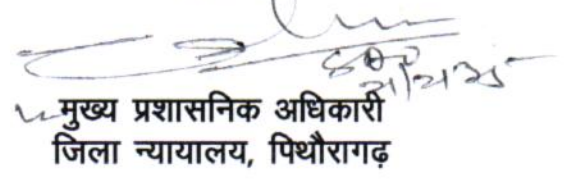 मुख्य प्रशासनिक अधिकारी
जिला न्यायालय, पिथौरागढ़